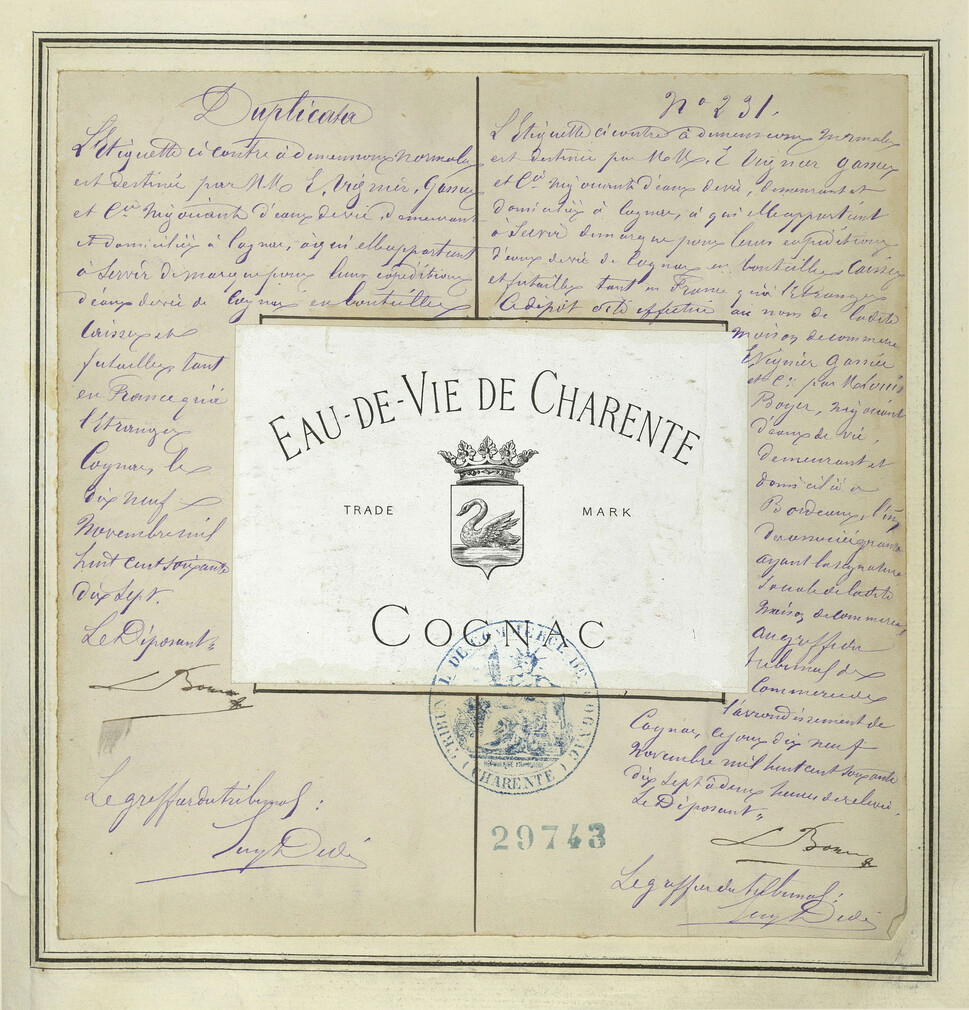 Duplicata
L'Etiquette ci contre à dimensions normales
est destinée par MM E. Vignier, Gassie
et Cie négociants d'eaux de vie, demeurant
et domiciliés à Cognac, à qui elle appartient
à servir de marque pour leurs expéditions
d'eaux de vie de Cognac en bouteilles
caisses et
futailles tant
en France qu'à
l'étranger
Cognac, le
dix neuf
Novembre mil
huit cent soixante
dix sept.
Le Déposant
L Boyer
Le greffier du tribunal :
No 231.
L'Etiquette ci contre à dimensions normales
est destinée par MM. E Vignier Gassie
et Cie négociants d'eaux de vie, demeurant et
domiciliés à Cognac, à qui elle appartient
à servir de marque pour leurs expéditions
d'eaux de vie de Cognac en bouteilles caisses
et futailles tant en France qu'à l'étranger
Ce dépôt a été effectué au nom de ladite
maison de commerce
E Vignier Gassie
et Cie par M Louis
Boyer, négociant
d'eaux de vie,
demeurant et
domicilié à
Bordeaux, l'un
des associés gérants
ayant la signature
sociale de ladite
maison de commerce,
au greffe du
tribunal de
Commerce de
l'arrondissement de
Cognac, ce jour dix neuf
Novembre mil huit cent soixante
dix sept à deux heures de relevée.
Le Déposant
L Boyer
Le greffier du tribunal :
EAU-DE-VIE DE CHARENTE
TRADE MARK
COGNAC
TRIBUNAL DE COMMERCE DE COGNAC
(CHARENTE)
29743